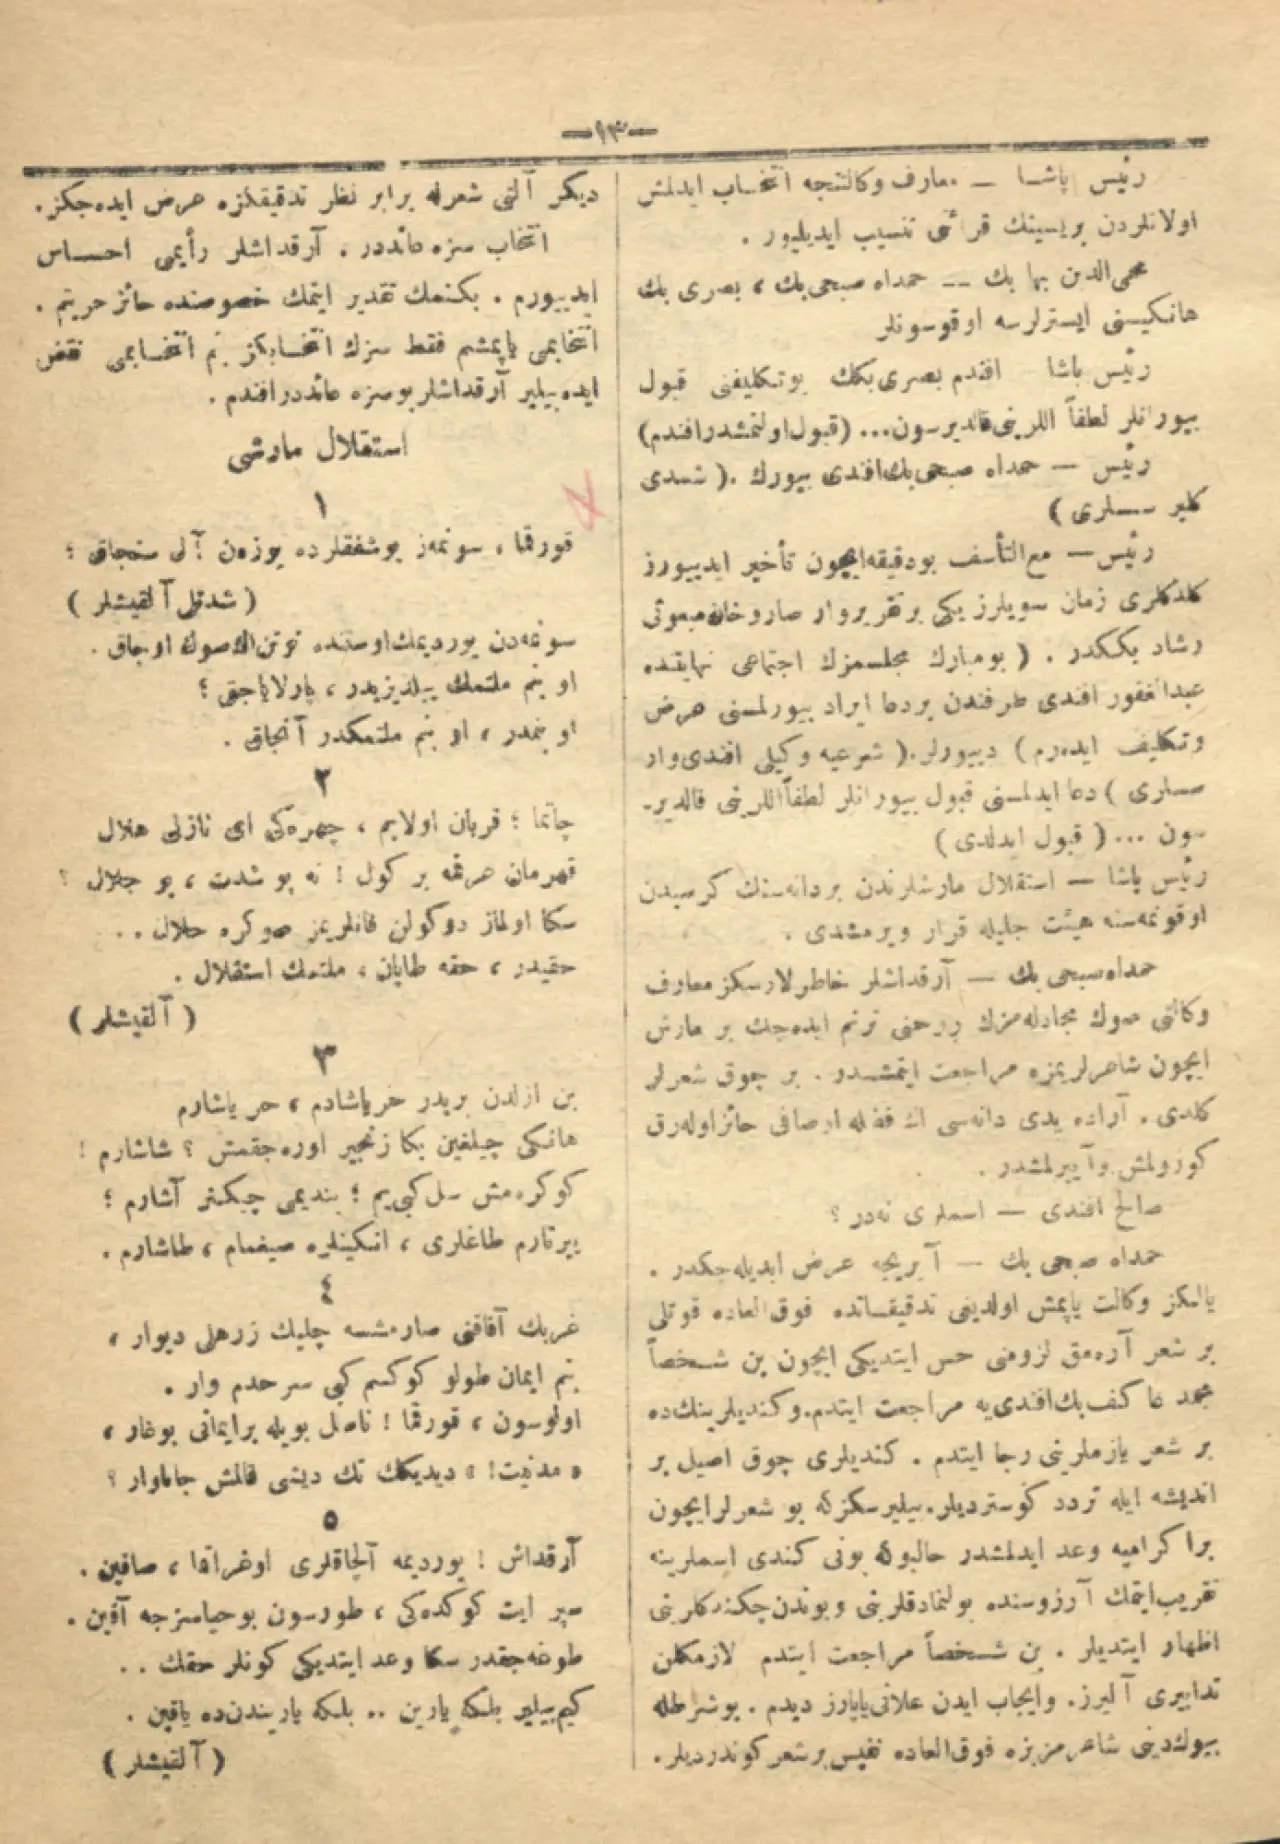 —۹۳—
رئيس پاشا — معارف وكالتنجه انتخاب ايدلمش
اولانلردن بريسينك قرائتى تنسيب ايديليور .
محى‌الدين بها بك — حمداه صبحى بك ، بصرى بك
هانكيسنى ايسترلرسه اوقوسونلر
رئيس پاشا — افندم بصرى بكك بوتكليفنى قبول
بيورانلر لطفاً اللرينى قالديرسون... (قبول اولنمشدر افندم)
رئيس — حمداه صبحى بك افندى بيورك .( شمدى
كلير سسلرى )
رئيس — مع‌التأسف بودقيقه ايچون تأخير ايدييورز
كلدكلرى زمان سويلرز يكى برتقرير وار صاروخان مبعوثى
رشاد بككدر . ( بومبارك مجلسمزك اجتماعى نهايتنده
عبدالغفور افندى طرفندن بردعا ايراد بيورلمسنى عرض
وتكليف ايده‌رم ) دييورلر.( شرعيه وكيلى افندى وار
سسلرى ) دعا ايدلمسنى قبول بيورانلر لطفاً اللرينى قالدير-
سون ... ( قبول ايدلدى )
رئيس پاشا — استقلال مارشلرندن بردانه‌سنك كرسيدن
اوقونمه‌سنه هيئت جليله قرار ويرمشدى .
حمداه صبحى بك — آرقداشلر خاطرلارسكز معارف
وكالتى صوك مجادله‌مزك روحنى ترنم ايده‌جك بر مارش
ايچون شاعرلريمزه مراجعت ايتمشدر . بر چوق شعرلر
كلدى . آراده يدى دانه‌سى اك فضله اوصافى حائز اوله‌رق
كورولمش وآيريلمشدر .
صالح افندى — اسملرى نه‌در ؟
حمداه صبحى بك — آيريجه عرض ايديله‌جكدر .
يالكز وكالت ياپمش اولدينى تدقيقاتده فوق‌العاده قوتلى
بر شعر آره‌مق لزومنى حس ايتديكى ايچون بن شخصاً
محمد عاكف بك افندى‌يه مراجعت ايتدم.وكنديلرينك‌ده
بر شعر يازملرينى رجا ايتدم . كنديلرى چوق اصيل بر
انديشه ايله تردد كوسترديلر.بيليرسكزكه بو شعرلر ايچون
بر اكراميه وعد ايدلمشدر حالبوكه بونى كندى اسملرينه
تقريب ايتمك آرزوسنده بولنمادقلرينى وبوندن چكندكلرينى
اظهار ايتديلر . بن شخصاً مراجعت ايتدم لازمكلن
تدابيرى آليرز. وايجاب ايدن علانى ياپارز ديدم . بوشرطله
بيوك دينى شاعرمزبزه فوق‌العاده نفيس برشعر كوندرديلر.
ديكر آلتى شعرله برابر نظر تدقيقكزه عرض ايده‌جكز.
انتخاب سزه عائددر . آرقداشلر رأيمى احساس
ايدييورم . بكنمك تقدير ايتمك خصوصنده حائز حريتم .
انتخابمى ياپمشم فقط سزك انتخابكز بنم انتخابمى نقض
ايده‌بيلير آرقداشلر بوسزه عائددر افندم .
استقلال مارشى
١
قورقما ، سونمه‌ز بوشفقلرده يوزن آل سنجاق ؛
( شدتلى آلقيشلر )
سونمه‌دن يورديمك اوستنده توتن اك صوك اوجاق .
او بنم ملتمك ييلديزيدر ، پارلاياجق ؛
او بنمدر ، او بنم ملتمكدر آنجاق .
٢
چاتما ؛ قربان اولايم ، چهره‌كى اى نازلى هلال
قهرمان عرقمه بر كول ! نه بو شدت ، بو جلال ؟
سكا اولماز دوكولن قانلريمز صوكره حلال . .
حقيدر ، حقه طاپان ، ملتمك استقلال .
( آلقيشلر )
٣
بن ازلدن بريدر حر ياشادم ، حر ياشارم
هانكى چيلغين بكا زنجير اوره‌جقمش ؟ شاشارم !
كوكره‌مش سل كبى‌يم ؛ بنديمى چيكنر آشارم ؛
ييرتارم طاغلرى ، انكينلره صيغمام ، طاشارم .
٤
غربك آفاقنى صارمشسه چليك زرهلى ديوار ،
بنم ايمان طولو كوكسم كبى سرحدم وار .
اولوسون ، قورقما ! ناصل بويله برايمانى بوغار ،
« مدنيت! » ديديكك تك ديشى قالمش جاناوار ؟
٥
آرقداش ! يورديمه آلچاقلرى اوغراتما ، صاقين .
سپر ايت كوكده‌كى ، طورسون بوحياسزجه آقين .
طوغه‌جقدر سكا وعد ايتديكى كونلر حقك . .
كيم بيلير بلكه يارين .. بلكه ياريندن‌ده ياقين .
( آلقيشلر )